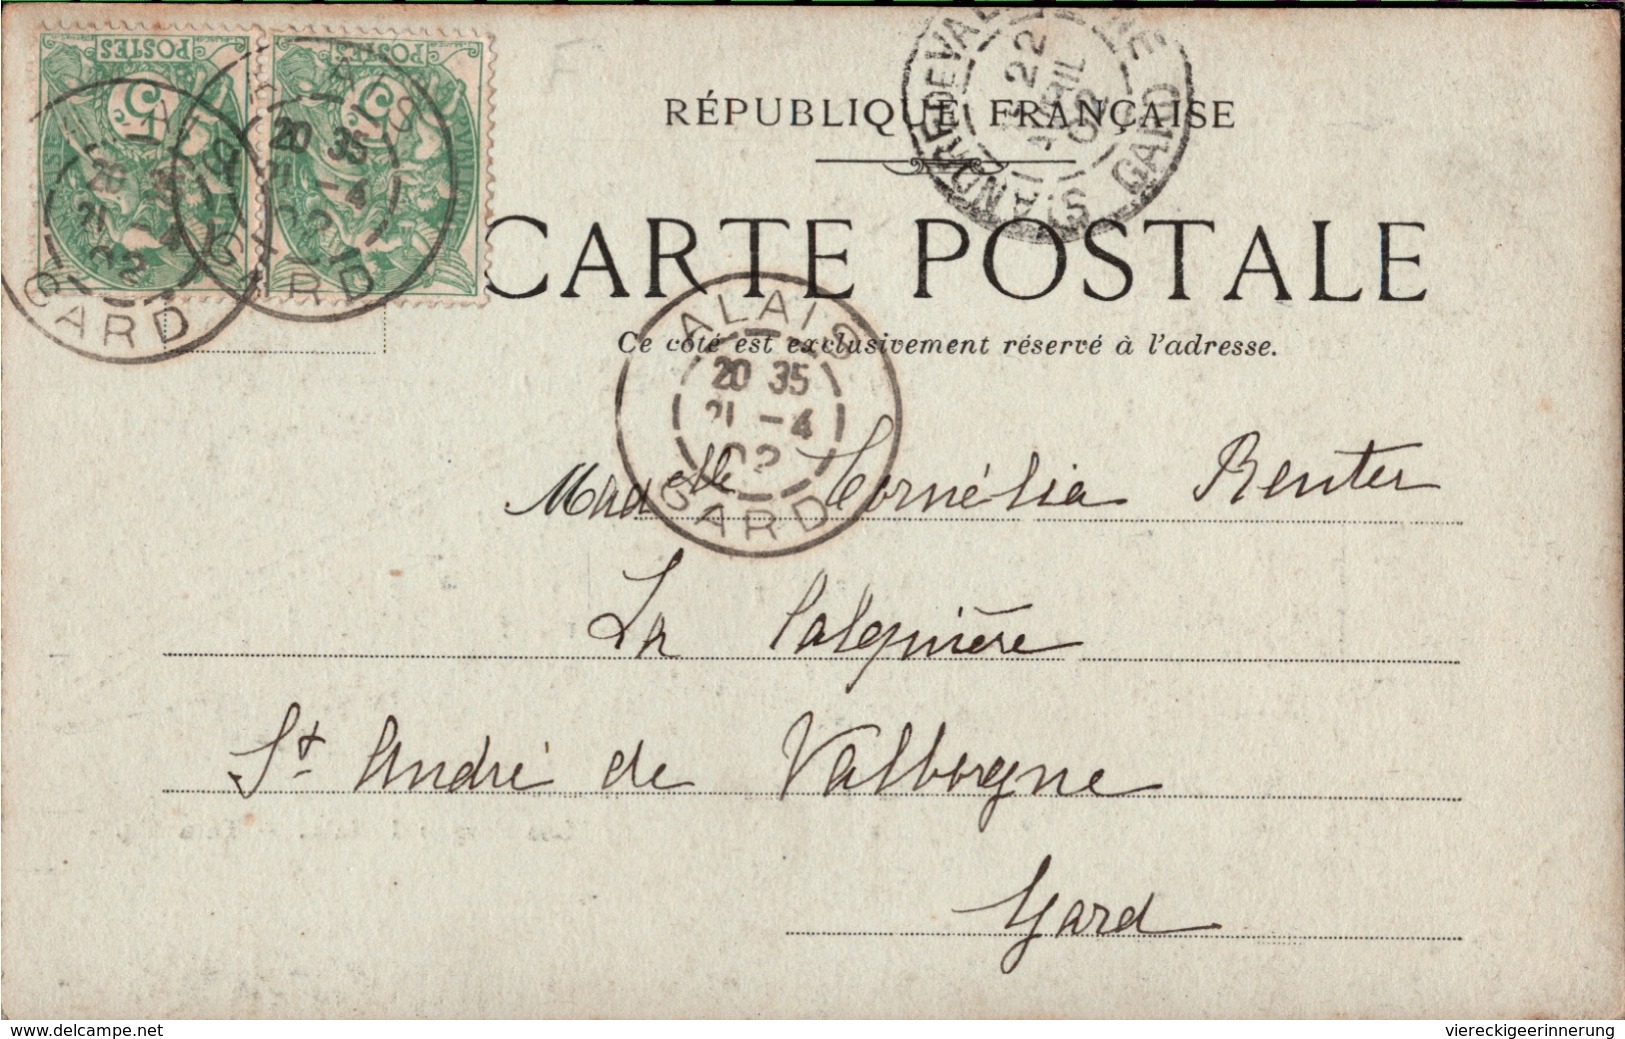 POSTES POSTES
5 5
ALAIS
20 35
21 -4
02
GARD
ALAIS
20 35
21 -4
02
GARD
22
AVRIL
02
GARD
RÉPUBLIQUE FRANÇAISE
CARTE POSTALE
Ce côté est exclusivement réservé à l'adresse.
ALAIS
20 35
21 -4
02
GARD
Madelle Cornélia Renter
La
St André de Valborgne
Gard
www.delcampe.net
viereckigeerinnerung